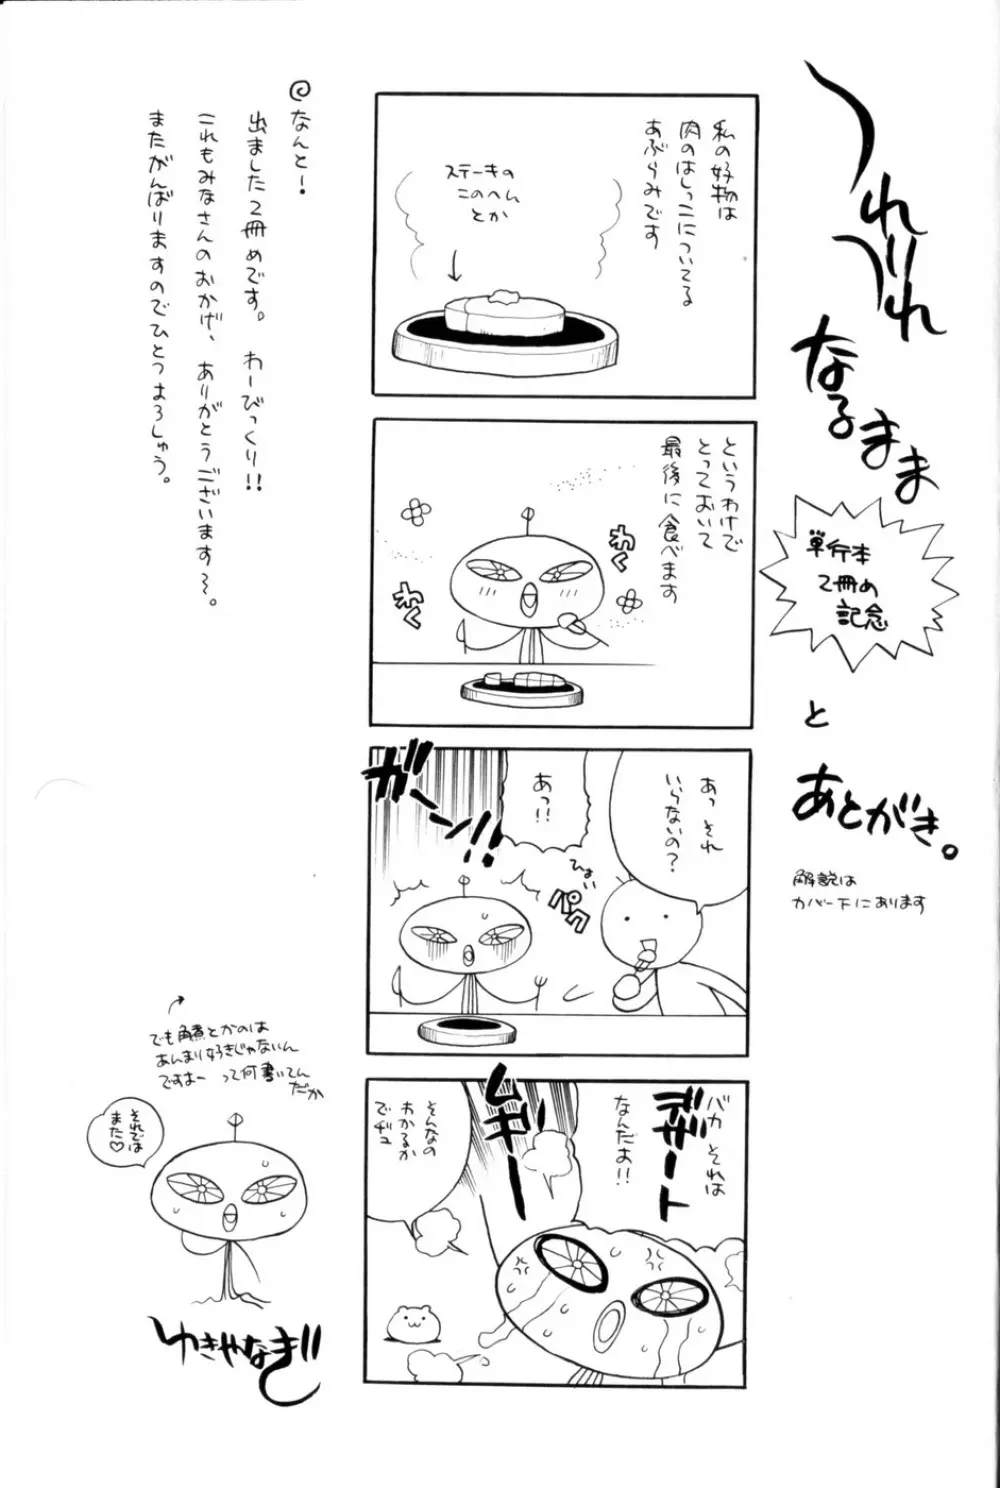 つれづれ
なるまま
単行本
2冊め
記念
と
あとがき。
解説は
カバー下にあります
私の好物は
肉のはしっこについてる
あぶらみです
ステーキの
このへん
とか
というわけで
とっておいて
最後に食べます
わく
わく
あっ それ
いらないの?
あっ!!
ひょい
パク
ガーン!!
バカ それは
デザート
なんだよ!!
ムギーーー
そんなの
わかるか
でギュ
@なんと!
出ました2冊めです。 わーびっくり!!
これもみなさんのおかげ、ありがとうございます〜。
またがんばりますのでひとつよろしゅう。
でも角煮とかのは
あんまり好きじゃないん
ですよー って何書いてん
だか
それでは
また♡
ゆきやなぎ